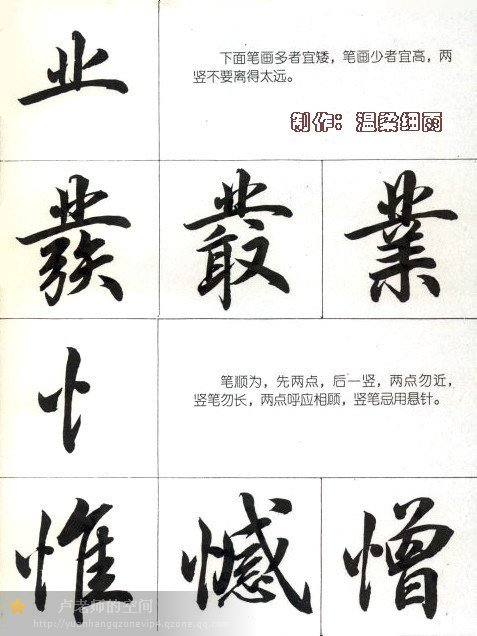 业
下面笔画多者宜矮，笔画少者宜高，两
竖不要离得太远。
制作：温柔细雨
發 叢 業
忄
笔顺为，先两点，后一竖，两点勿近，
竖笔勿长，两点呼应相顾，竖笔忌用悬针。
惟 憾 憎
卢老师的空间